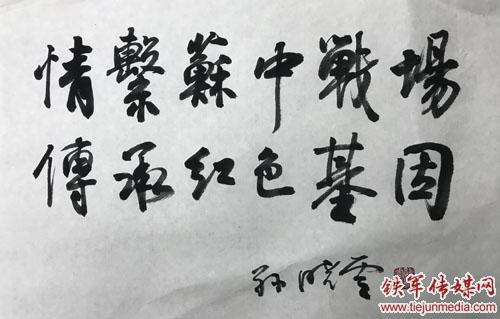 情繫蘇中戰場
傳承红色基因
孙晓云
铁军传媒网
www.tiejunmedia.com